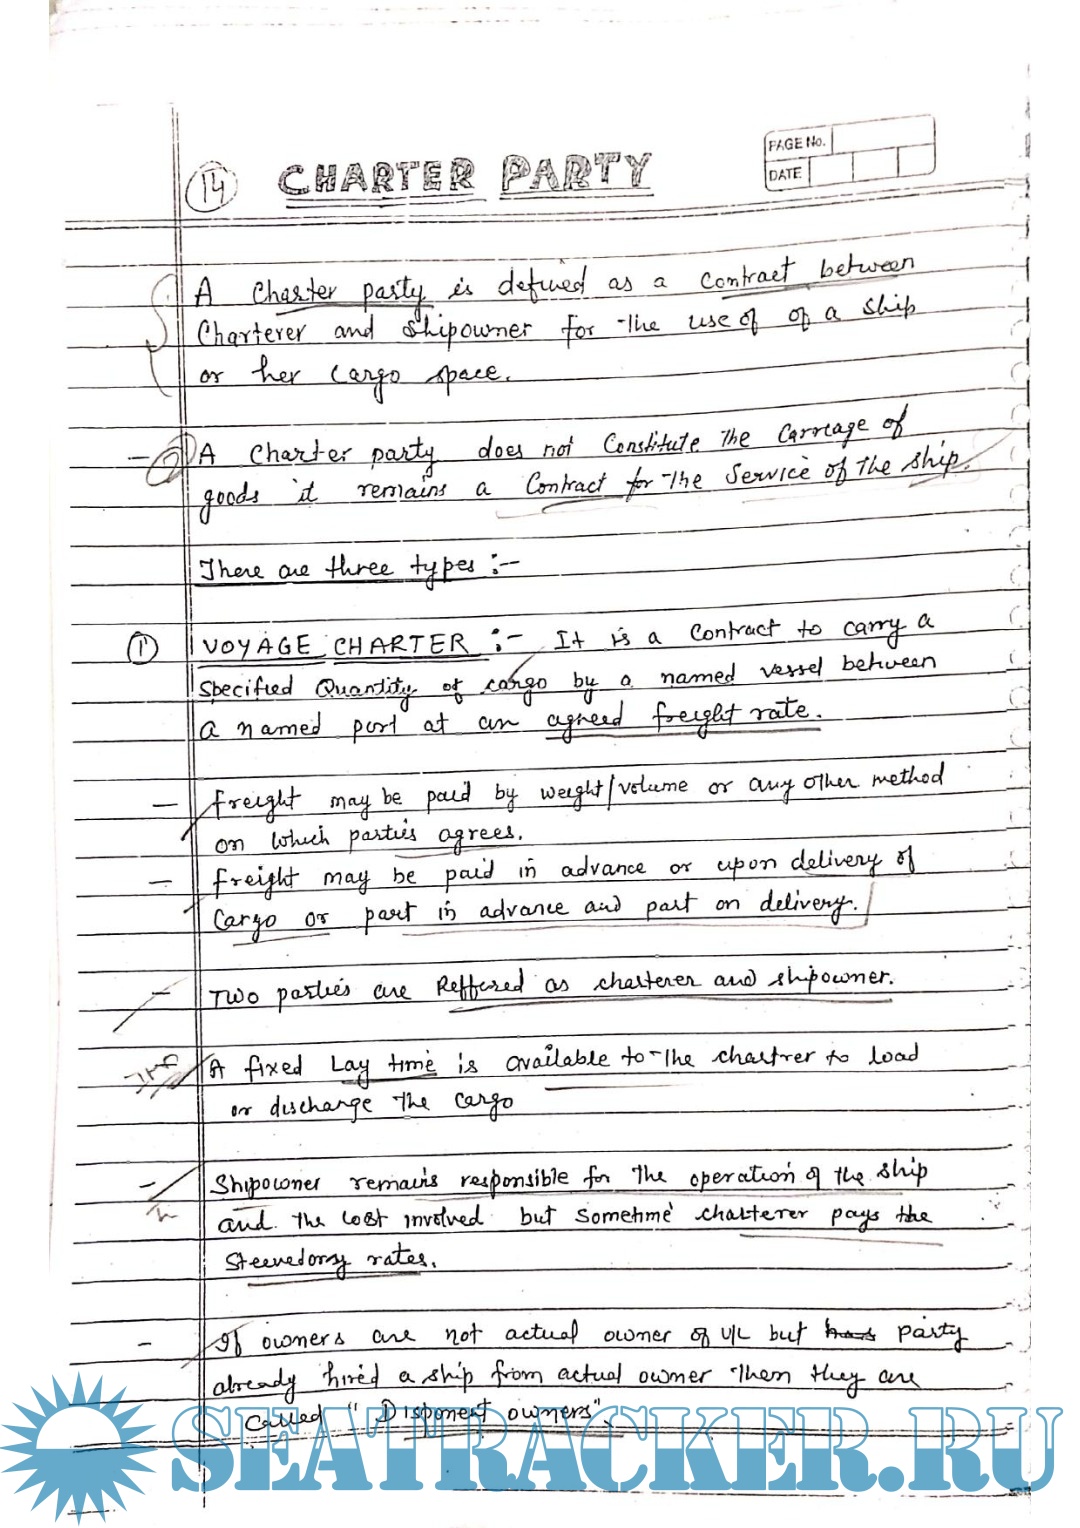 PAGE No.
DATE
14 CHARTER PARTY
A Charter party is defined as a Contract between
Charterer and Shipowner for the use of of a ship
or her Cargo space.
- 2 A Charter party does not Constitute the Carreage of
goods it remains a Contract for the Service of the ship.
There are three types :-
1 VOYAGE CHARTER :- It is a Contract to carry a
Specified Quantity of cargo by a named vessel between
a named port at an agreed freight rate.
- freight may be paid by weight/volume or any other method
on which parties agrees.
- freight may be paid in advance or upon delivery of
Cargo or part in advance and part on delivery.
- Two parties are Reffered as charterer and shipowner.
A fixed Lay time is available to the chartrer to load
or discharge the cargo
- Shipowner remains responsible for the operation of the ship
and the cost involved but sometime charterer pays the
Steevedorng rates.
- If owners are not actual owner of v/L but has party
already hired a ship from actual owner then they are
Called "Disponent owners".
SEATRACKER.RU